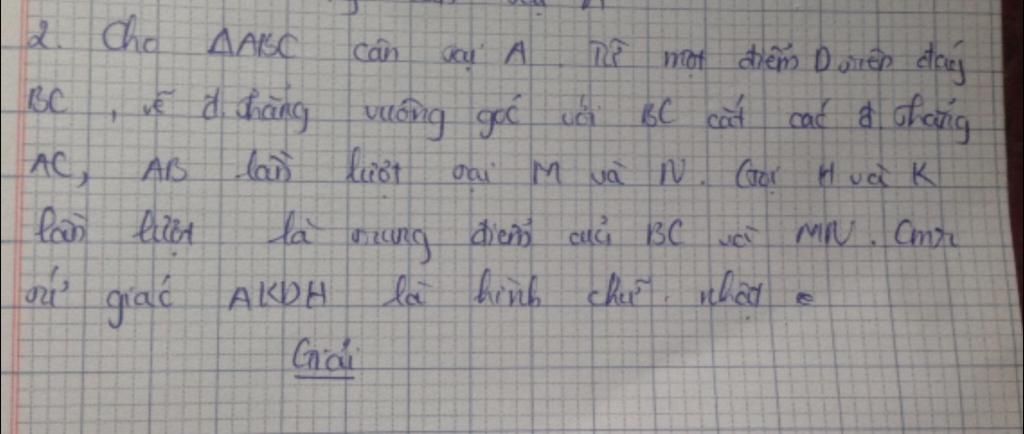 2. Cho ΔABC cân tại A. Từ một điểm D trên đáy
BC, vẽ đ. thẳng vuông góc với BC cắt các đ thẳng
AC, AB lần lượt tại M và N. Gọi H và K
lần lượt là trung điểm của BC và MN. Cmr
tứ giác AKDH là hình chữ nhật.
Giải